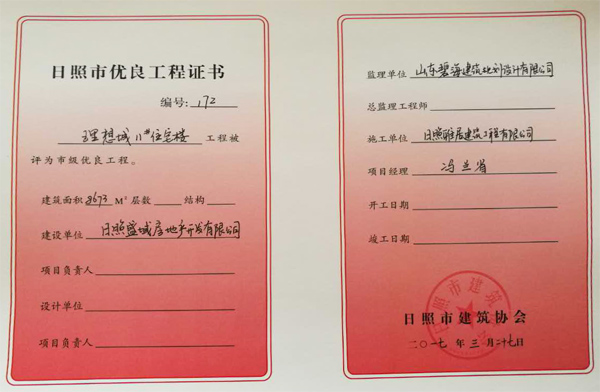 日照市优良工程证书
编号：172
理想城11#住宅楼 工程被
评为市级优良工程。
建筑面积8673 M² 层数 结构
建设单位 日照盛城房地产开发有限公司
项目负责人
设计单位
项目负责人
监理单位 山东碧海建筑规划设计有限公司
总监理工程师
施工单位 日照雅居建筑工程有限公司
项目经理 冯兰省
开工日期
竣工日期
日照市建筑协会
日照市建筑协会
二〇一七年三月二十七日